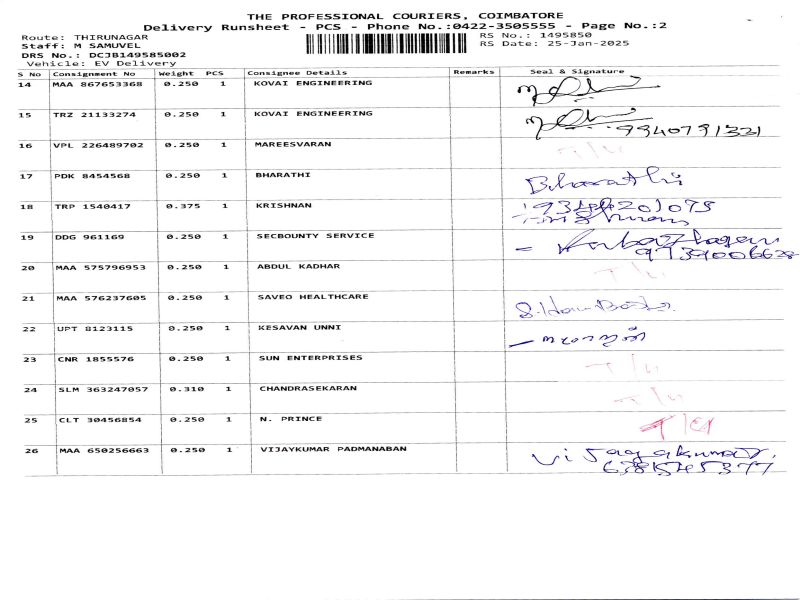 THE PROFESSIONAL COURIERS, COIMBATORE
Delivery Runsheet - PCS - Phone No.:0422-3505555 - Page No.:2
Route: THIRUNAGAR
RS No.: 1495850
Staff: M SAMUVEL
RS Date: 25-Jan-2025
DRS No.: DCJB149585002
Vehicle: EV Delivery
S No Consignment No Weight PCS Consignee Details Remarks Seal & Signature
14 MAA 867653368 0.250 1 KOVAI ENGINEERING
15 TRZ 21133274 0.250 1 KOVAI ENGINEERING 9940791321
16 VPL 226489702 0.250 1 MAREESVARAN
17 PDK 8454568 0.250 1 BHARATHI Bharathi
18 TRP 1540417 0.375 1 KRISHNAN 9344201075
19 DDG 961169 0.250 1 SECBOUNTY SERVICE
20 MAA 575796953 0.250 1 ABDUL KADHAR
21 MAA 576237605 0.250 1 SAVEO HEALTHCARE
22 UPT 8123115 0.250 1 KESAVAN UNNI
23 CNR 1855576 0.250 1 SUN ENTERPRISES
24 SLM 363247057 0.310 1 CHANDRASEKARAN
25 CLT 30456854 0.250 1 N. PRINCE
26 MAA 650256663 0.250 1 VIJAYKUMAR PADMANABAN Vijayakumar.
6381545377